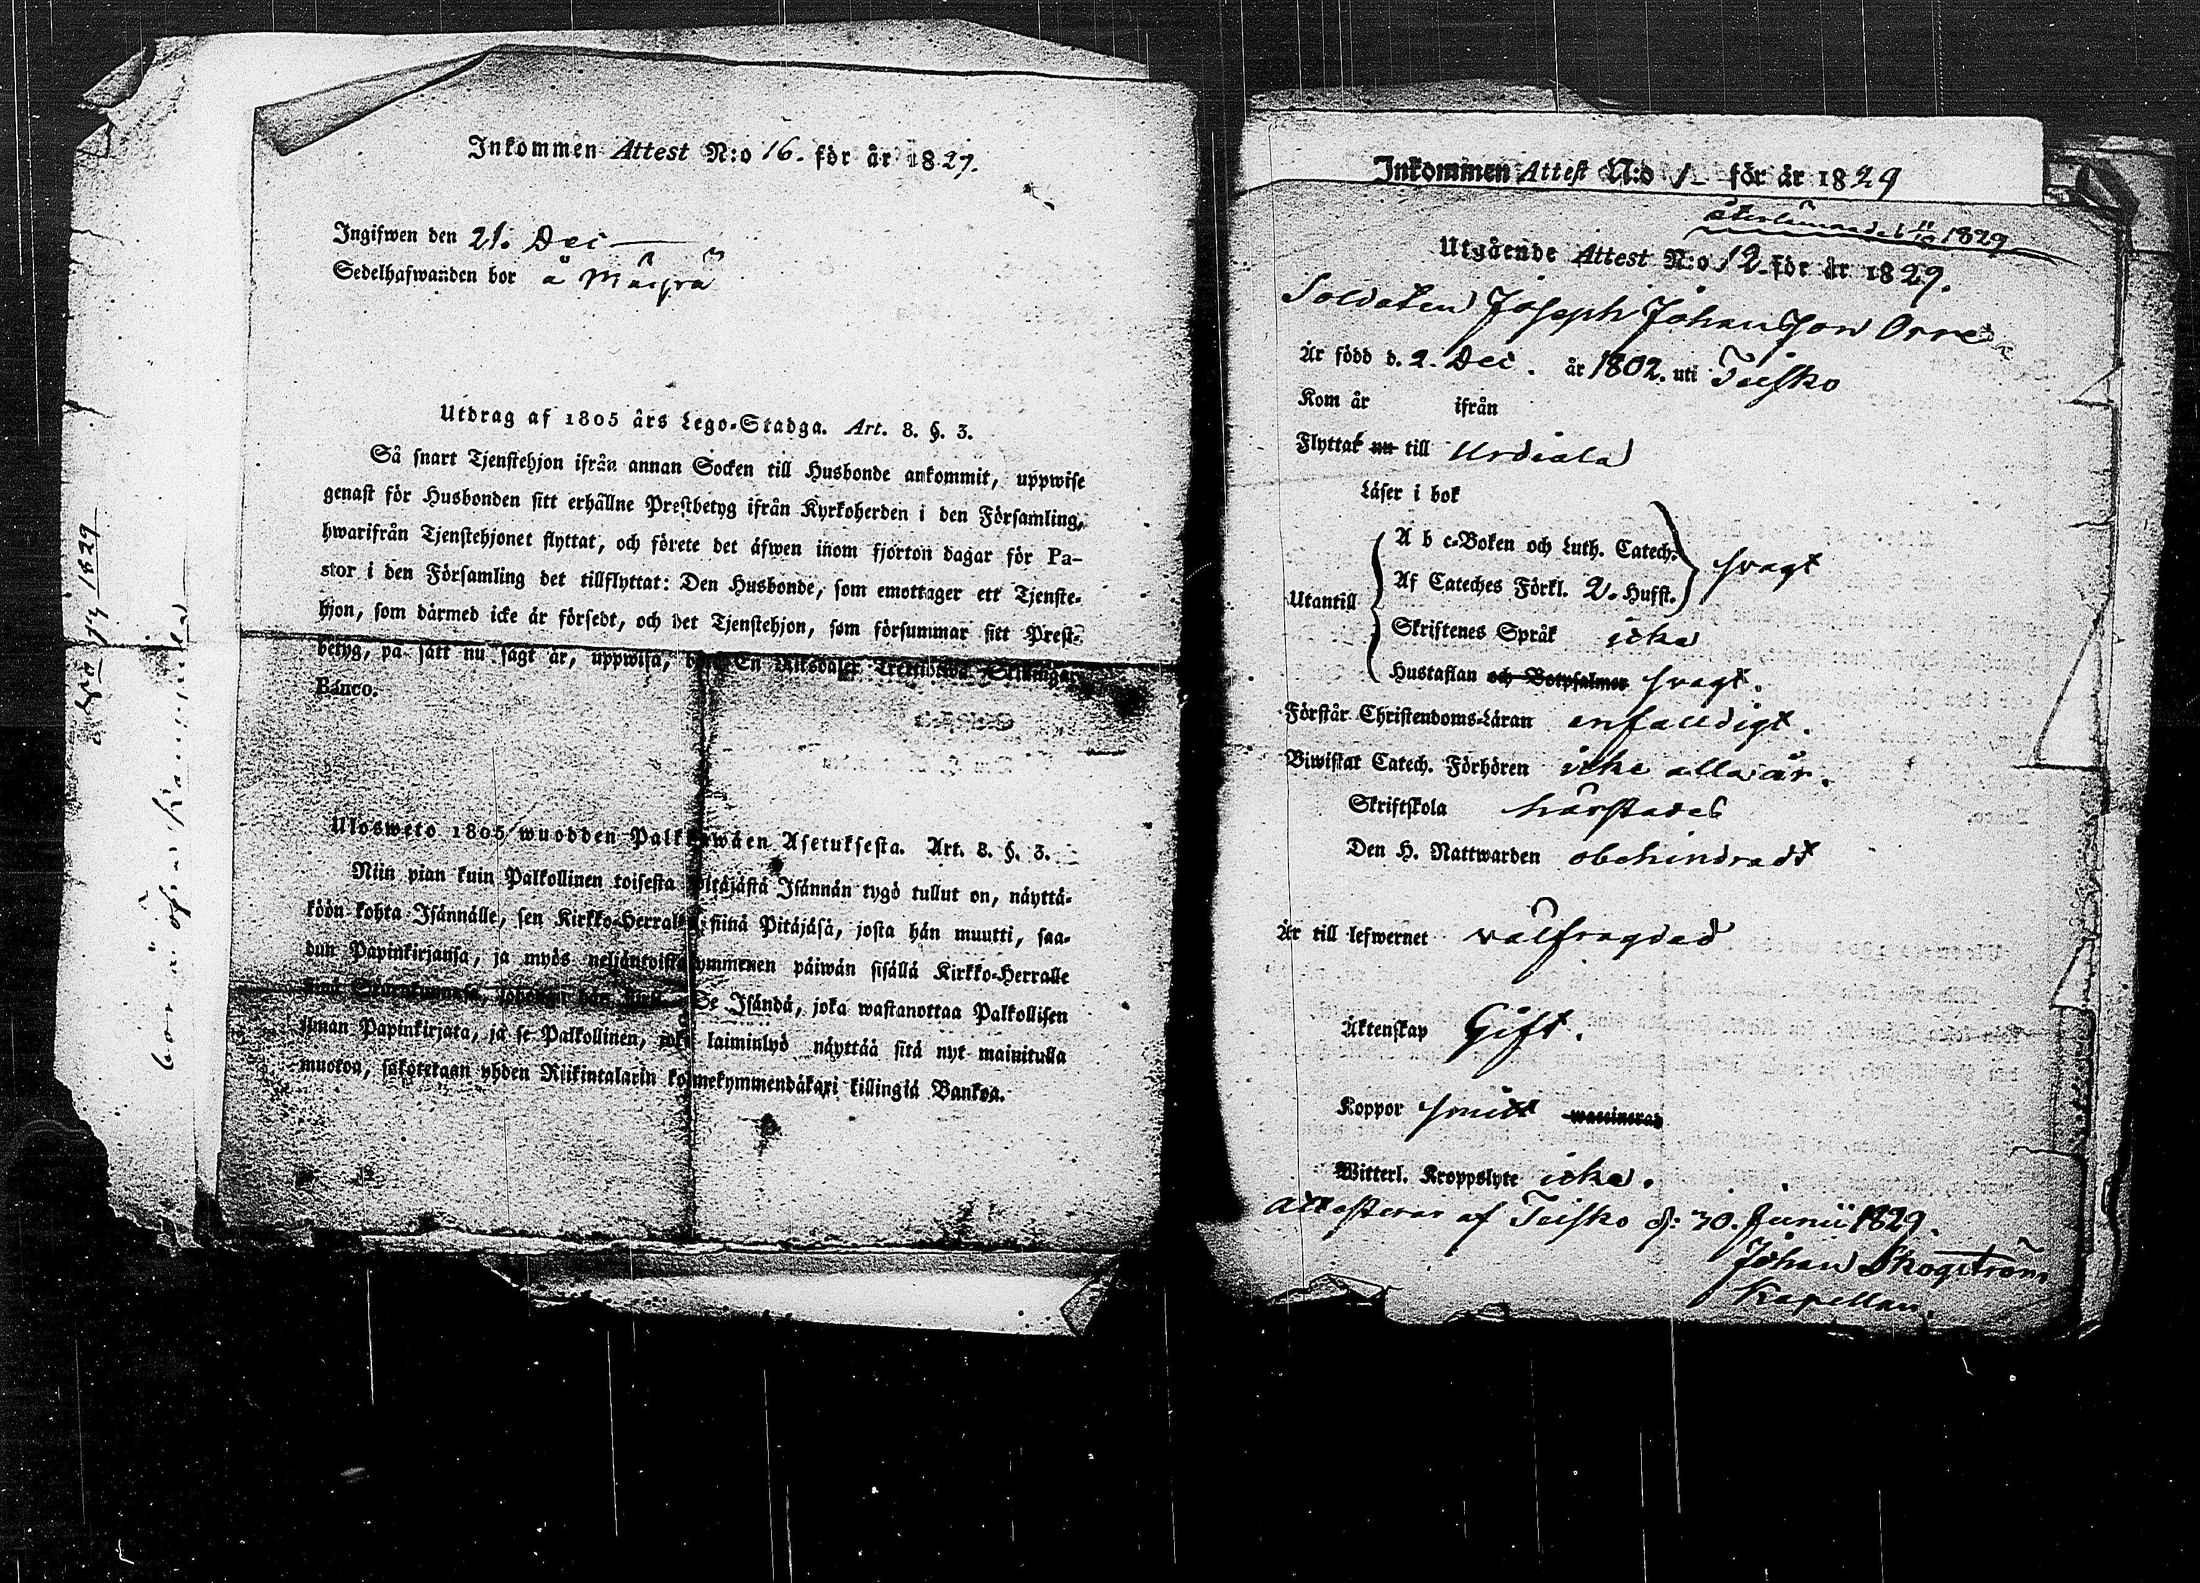 Inkommen Attest N:o 16. för år 1827.
Ingifwen den 21. Dec
Sedelhafwanden bor å
Utdrag af 1805 års Lego-Stadga. Art. 8. §. 3.
Så snart Tjenstehjon ifrån annan Socken till Husbonde ankommit, uppwise
genast för Husbonden sitt erhållne Prestbetyg ifrån Kyrkoherden i den Församling,
hwarifrån Tjenstehjonet flyttat, och förete det äfwen inom fjorton dagar för Pa-
stor i den Församling det tillflyttat: Den Husbonde, som emottager ett Tjenste-
hjon, som därmed icke är försedt, och det Tjenstehjon, som försummar sitt Prest-
betyg, på sätt nu sagt är, uppwisa, En Riksdaler
Banco.
Ulosweto 1805 wuodden Palkkawäen Asetuksesta. Art. 8. §. 3.
Niin pian kuin Palkollinen toisesta Pitäjästä Isännän tygö tullut on, näyttä-
köön kohta Isännälle, sen Kirkko-Herralta siinä Pitäjäsä, josta hän muutti, saa-
dun Papinkirjansa, ja myös neljäntoistakymmenen päiwän sisällä Kirkko-Herralle
Se Isändä, joka wastanottaa Palkollisen
ilman Papinkirjata, ja se Palkollinen, joka laiminlyö näyttää sitä nyt mainitulla
muotoa, sakotetaan yhden Riikintalarin kolmekymmendäkaxi killingiä Bankoa.
1829
bor å
Inkommen Attest N:o 1 för år 1829
1829
Utgående Attest N:o 12 för år 1829.
Soldaten Joseph Johansson Orre
År född d. 2. Dec. år 1802. uti Teisko
Kom år ifrån
Flyttat nu till Urdiala
Läser i bok
Utantill
A b c-Boken och Luth. Catech.
Af Cateches Förkl. 2. Hufst.
svagt
Skriftenes Språk icke
Hustaflan och Botpsalmer svagt.
Förstår Christendoms-Läran enfalldigt.
Biwistat Catech. Förhören icke alla år.
Skriftskola härstädes
Den H. Nattwarden obehindradt
År till lefwernet välfrägdad
Äktenskap Gift.
Koppor haft waccinerad
Witterl. Kroppslyte icke.
Attesterar af Teisko d: 30. Junii 1829.
Johan Skogström
Kapellan.